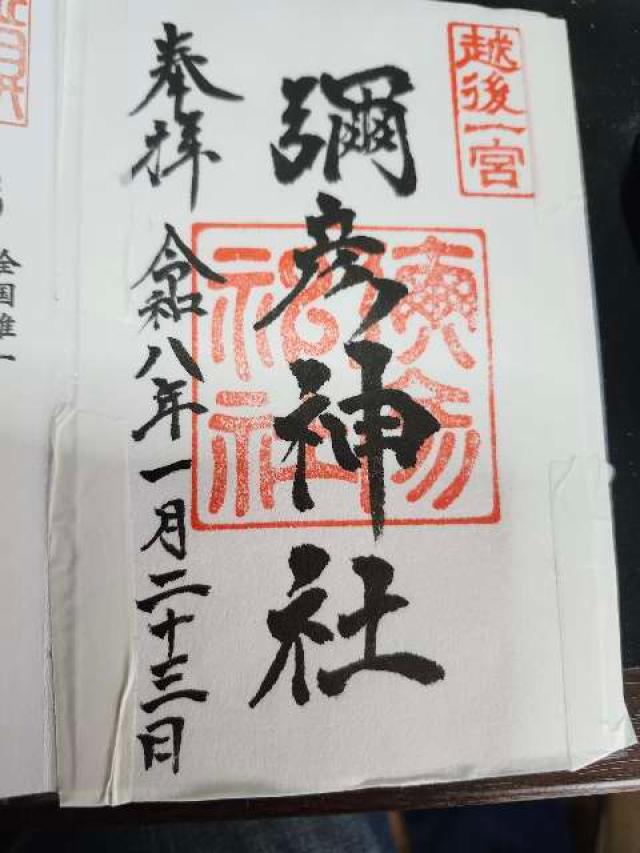 越後一宮
彌彦神社
奉拝
令和八年一月二十三日
全国唯一